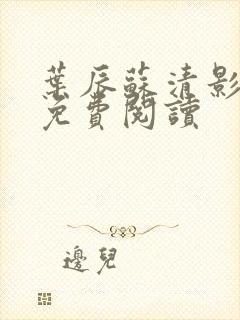 葉辰蘇清影
免費閱讀
邊兒